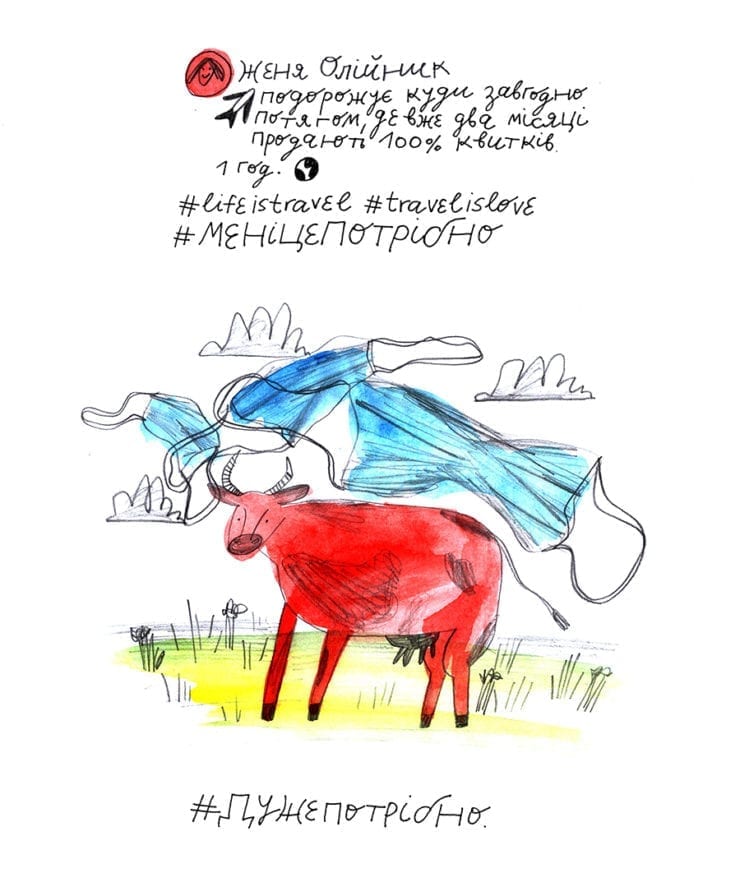 Женя Олійник
подорожує куди завгодно
потягом, де вже два місяці
продають 100% квитків.
1 год.
#lifeistravel #travelislove
#МЕНІЦЕПОТРІБНО
#ДУЖЕПОТРІБНО.